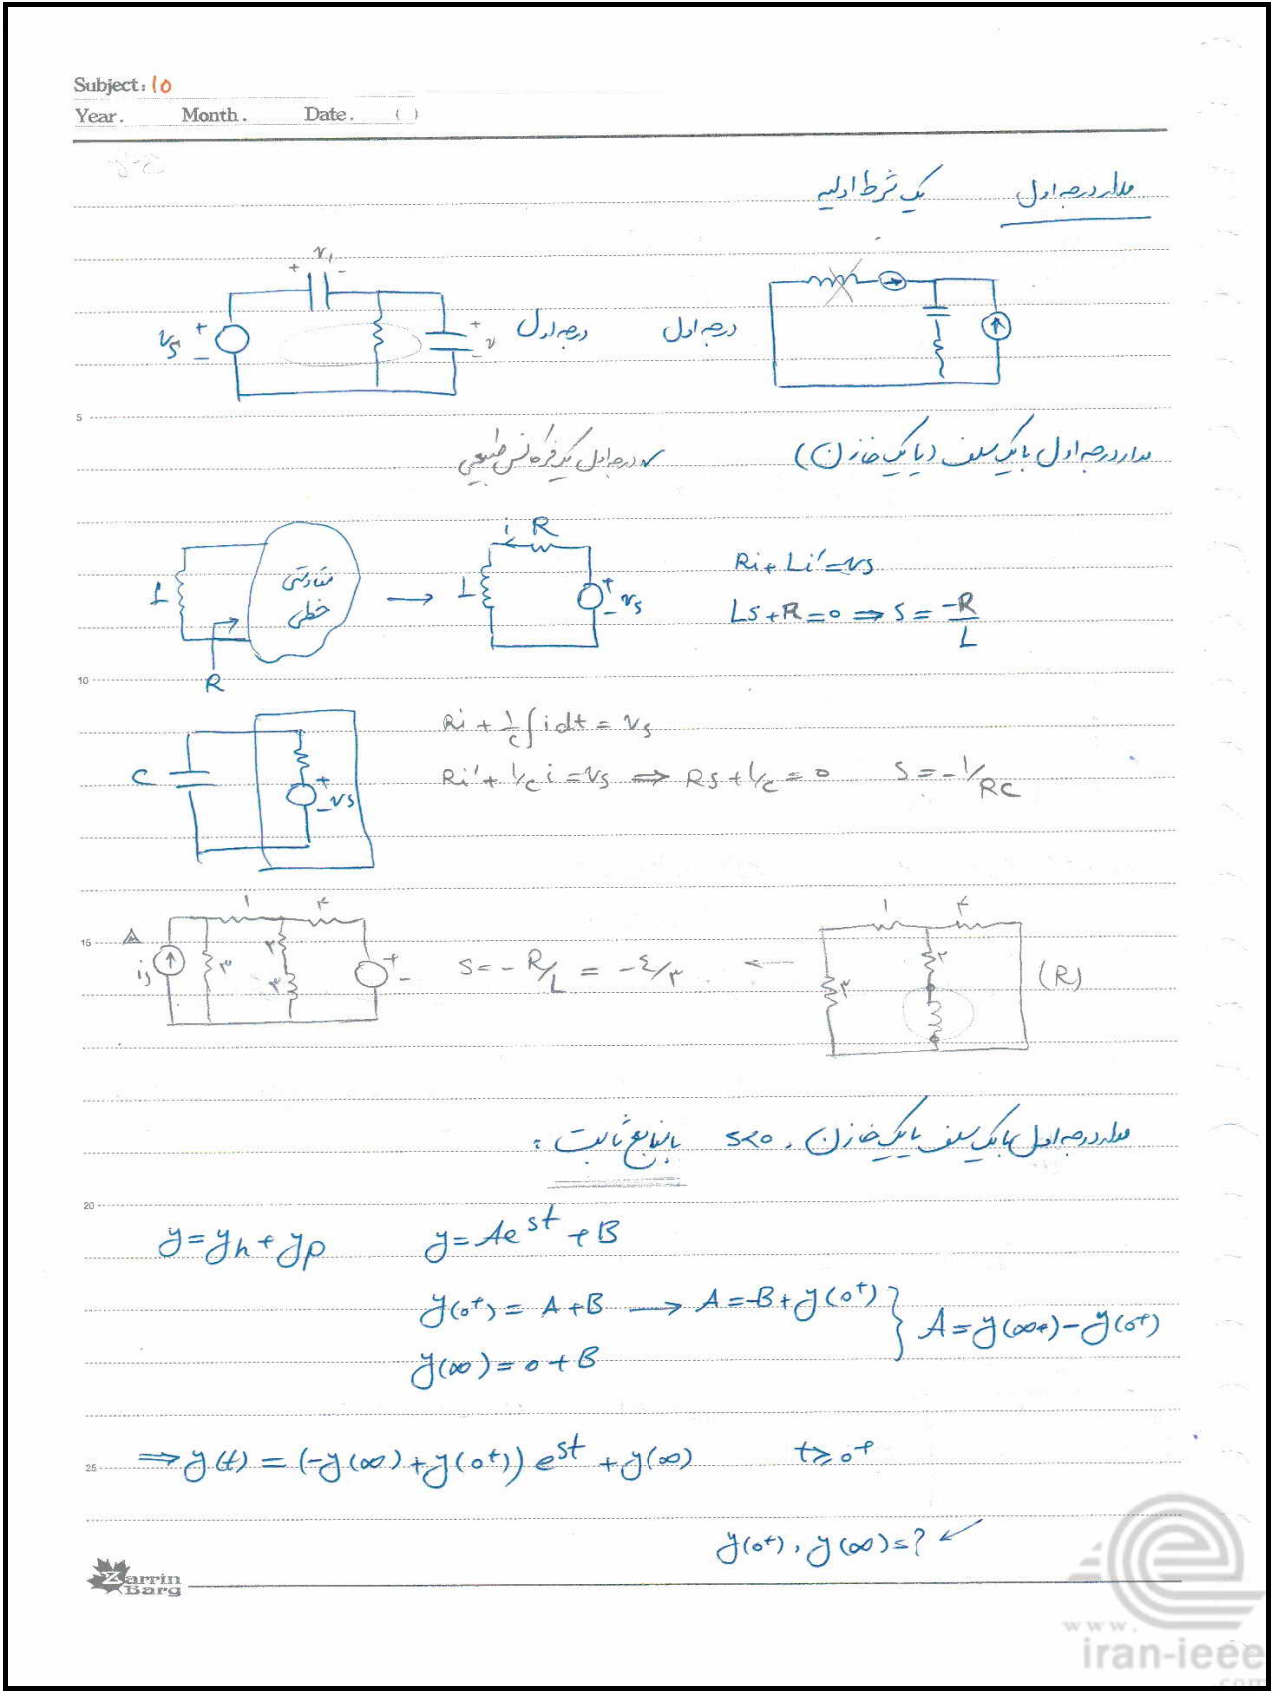 Subject: 10
Year. Month. Date. ( )
مدار درجه اول یک شرط اولیه
v₁
+ -
vs + - + v - درجه اول درجه اول
5
مدار درجه اول با یک سلف (یا یک خازن) ✓ درجه اول یک فرکانس طبیعی
L مقاومتی خطی R → L i R + - vs Ri + Li' = vs
Ls + R = 0 ⇒ s = -R/L
10
C + - vs Ri + 1/C ∫ i dt = vs
Ri' + 1/C i = vs ⇒ Rs + 1/C = 0 s = -1/RC
15
is ۳ ۱ ۲ ۳ + - s = -R/L = -۴/۳ ← ۱ ۲ ۳ (R)
مدار درجه اول با یک سلف یا یک خازن، s<0 با منابع ثابت :
20
y = yh + yp y = Ae^st + B
y(0⁺) = A + B → A = -B + y(0⁺) } A = y(∞) - y(0⁺)
y(∞) = 0 + B
25
⇒ y(t) = (-y(∞) + y(0⁺)) e^st + y(∞) t ≥ 0⁺
y(0⁺), y(∞) = ? ✓
Zarrin Barg
www.
iran-ieee
com